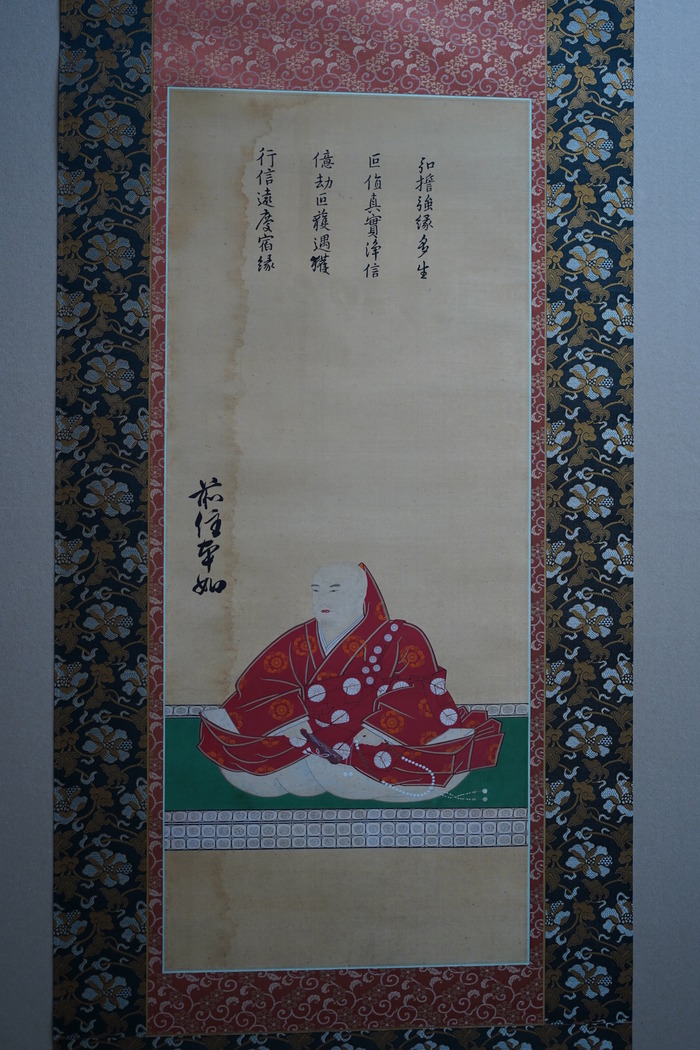 弘誓強縁多生
叵値真實淨信
億劫叵獲遇獲
行信遠慶宿縁
前住本如